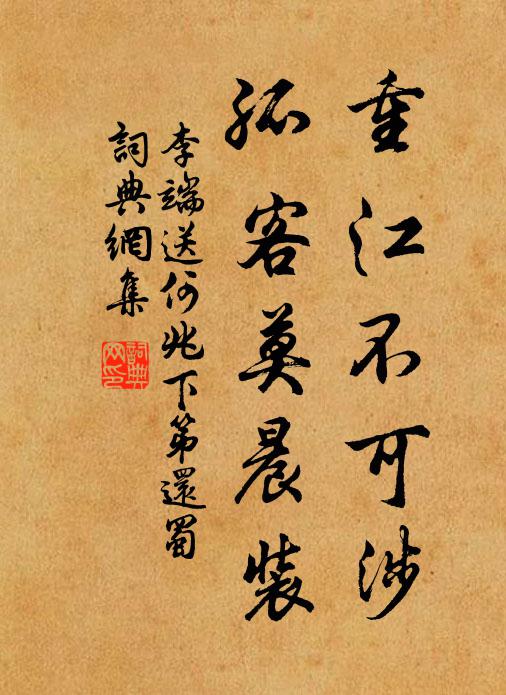 重江不可涉
孤客莫晨裝
李端送何兆下第還蜀
詞典網集
詞典網印